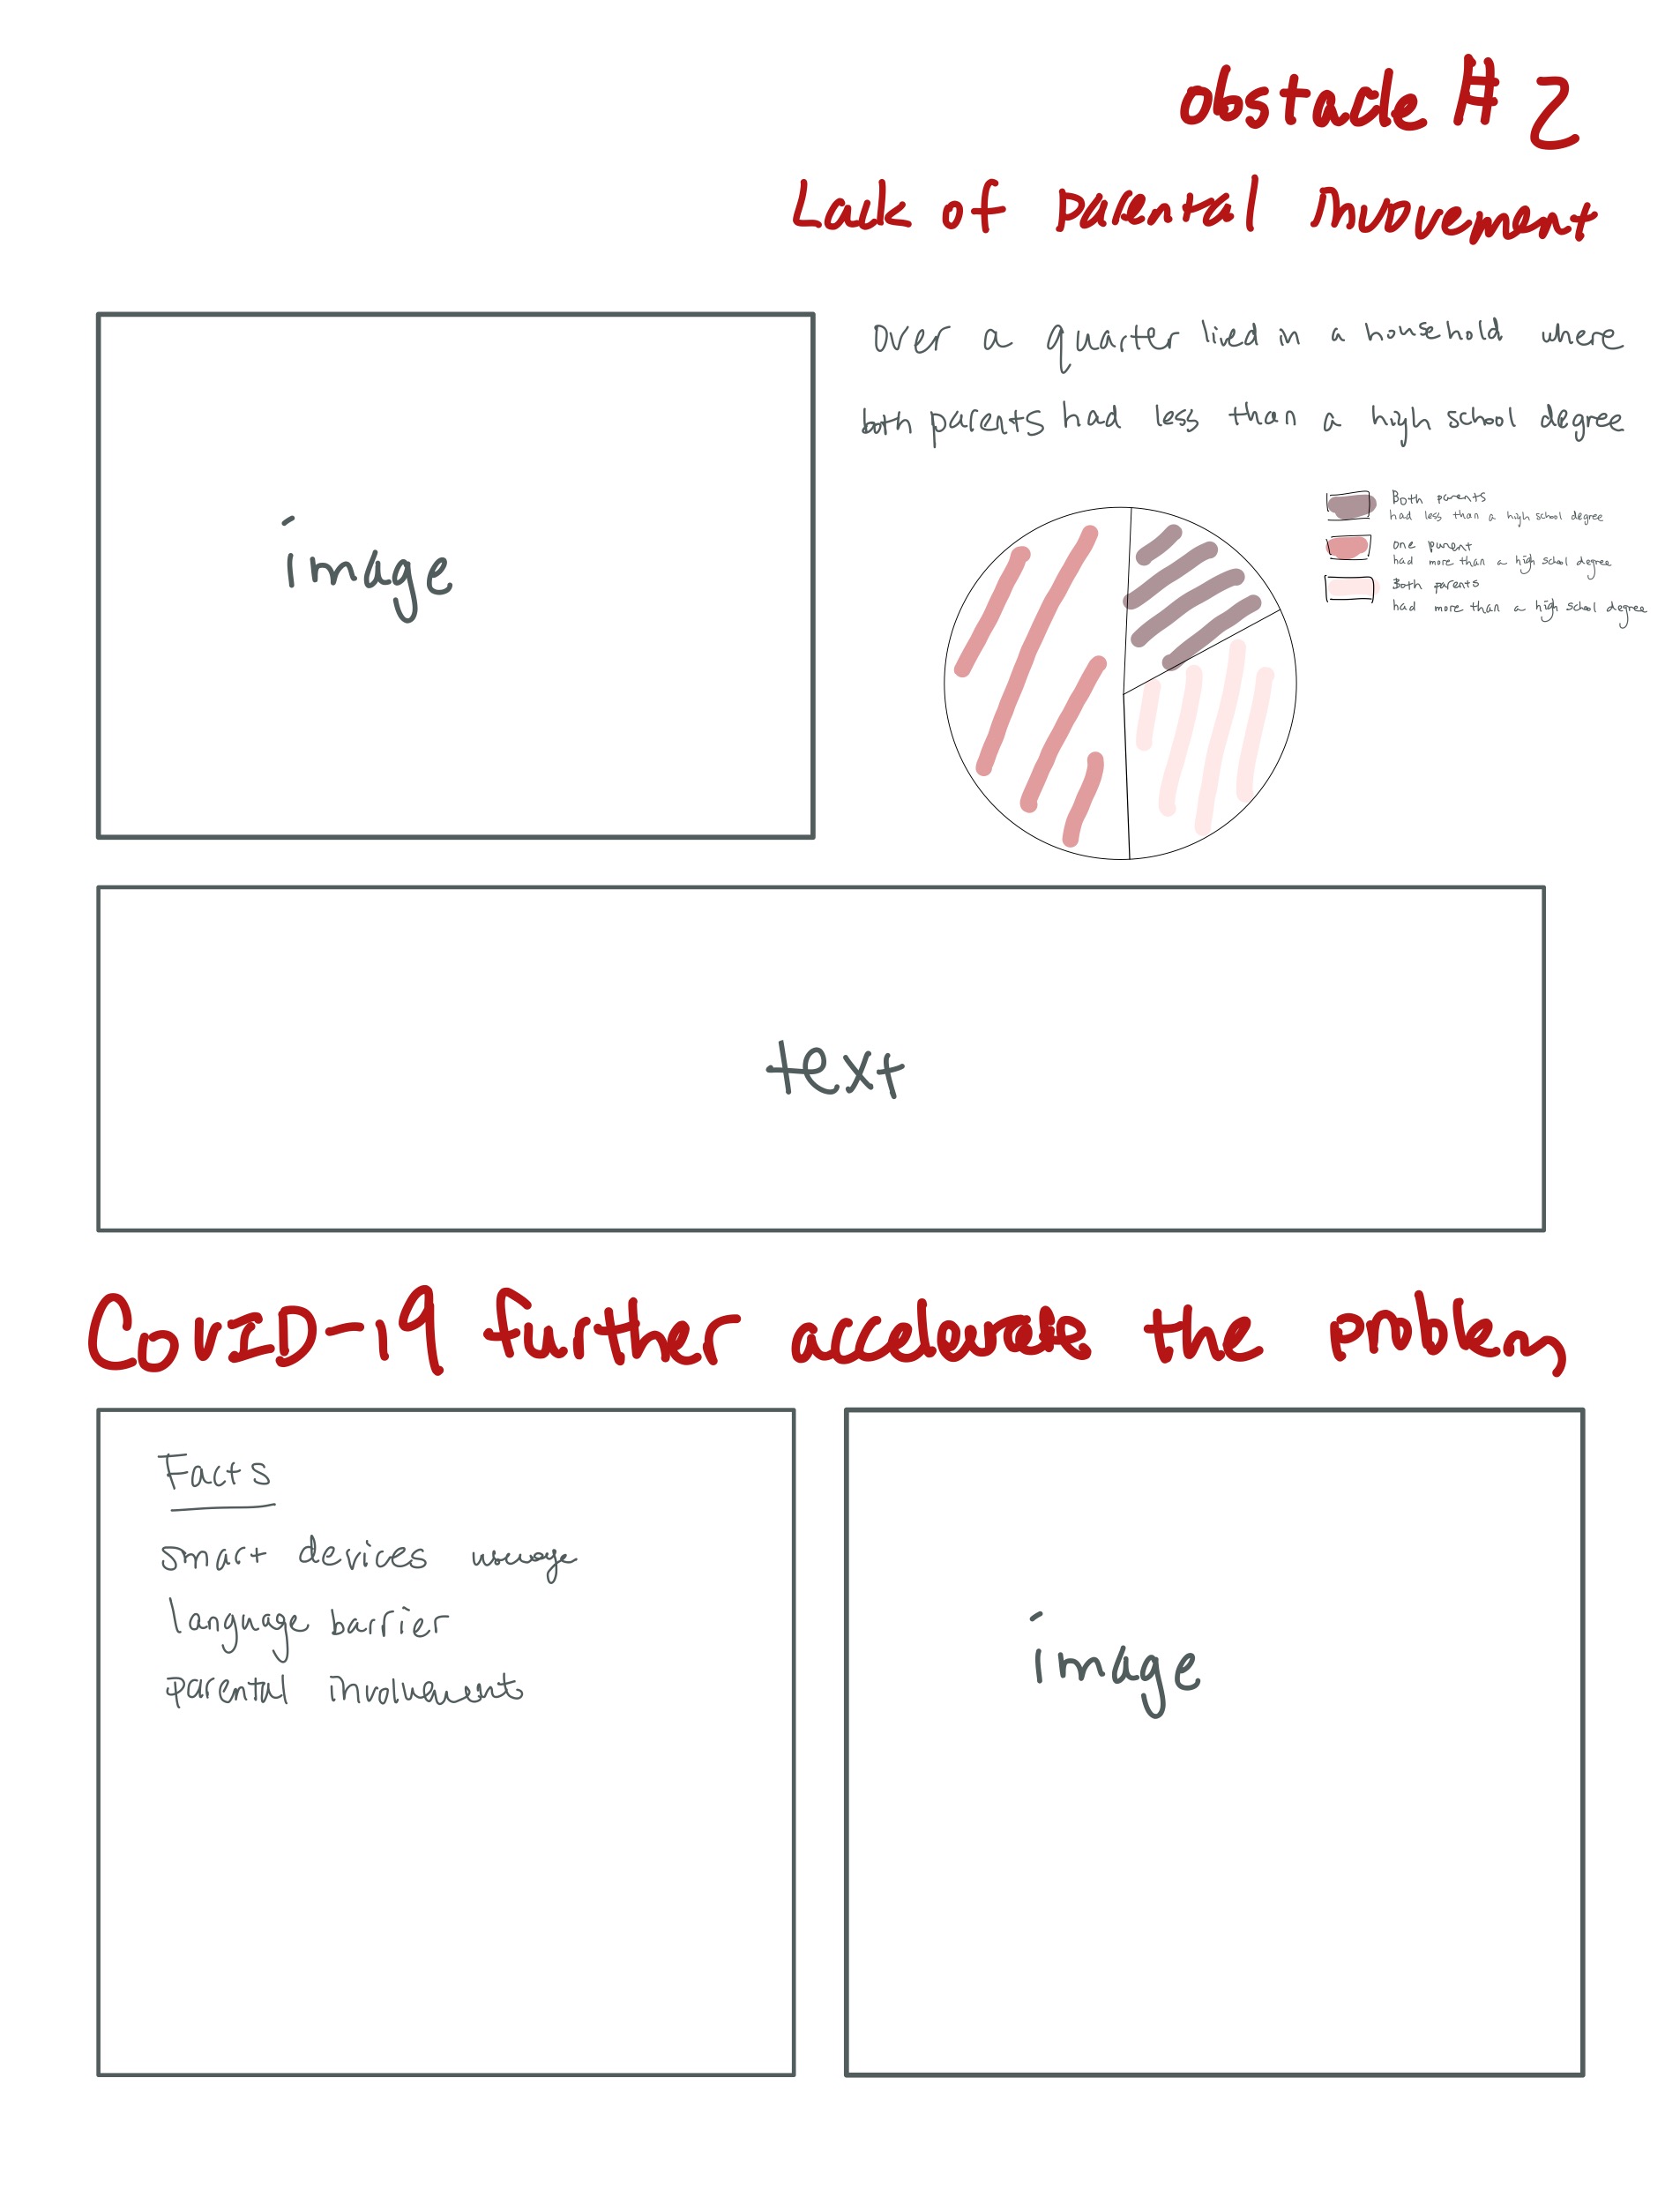 obstacle # 2
Lack of parental involvement
image
over a quarter lived in a household where
both parents had less than a high school degree
Both parents
had less than a high school degree
one parent
had more than a high school degree
Both parents
had more than a high school degree
text
COVID-19 further accelerate the problem
Facts
smart devices usage
language barrier
parental involvement
image